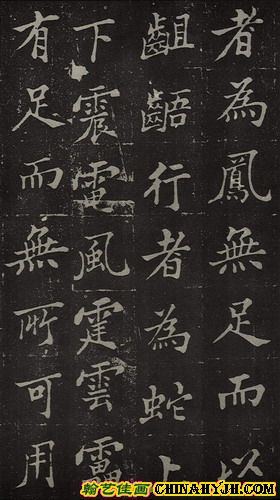 者為鳳無足而
齟齬行者為蛇上
下震電風霆雲雷
有足而無所可用
翰艺佳画 CHINAHYJH.COM